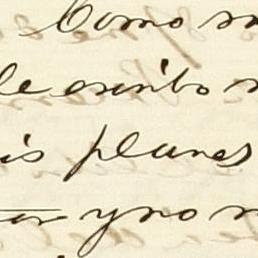 Como
le escribo
is planes
y no